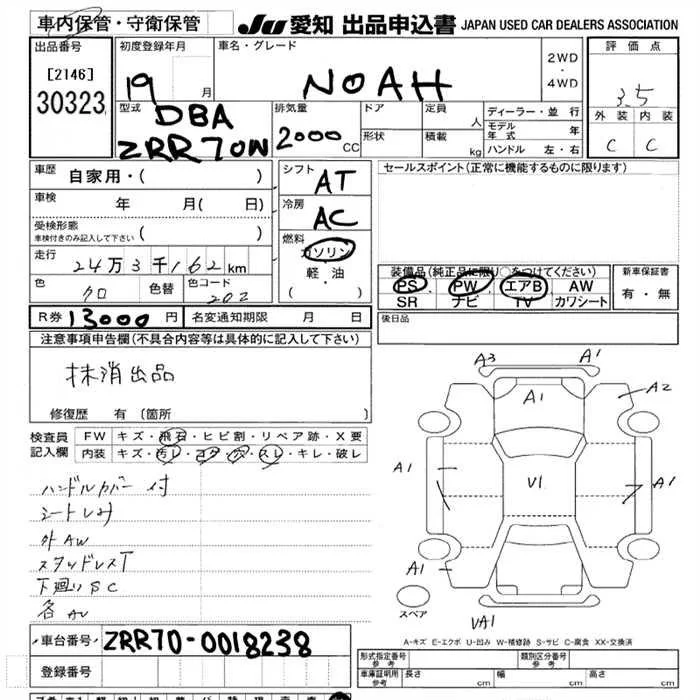 車内保管・守衛保管
JU 愛知 出品申込書 JAPAN USED CAR DEALERS ASSOCIATION
出品番号
[2146]
30323
初度登録年月
19 月
車名・グレード
NOAH
2WD
・
4WD
評価点
3.5
外装 内装
C C
型式
DBA
ZRR70W
排気量
2000 CC
ドア
形状
定員
人
積載
kg
ディーラー・並行
モデル年式 年
ハンドル 左・右
車歴
自家用・( )
車検
年 月( 日)
受検形態
車検付きのみ記入して下さい ( )
走行
24万3千162km
色
クロ
色替
色コード
202
シフト
AT
冷房
AC
燃料
ガソリン
・
軽・油
( )
セールスポイント(正常に機能するものに限ります)
装備品(純正品に限り○をつけてください)
PS PW エアB AW
SR ナビ TV カワシート
新車保証書
有・無
R券 13000 円
名変通知期限 月 日
後日品
注意事項申告欄(不具合内容等は具体的に記入して下さい)
抹消出品
修復歴 有 〔箇所 〕
検査員
記入欄
FW キズ・飛石・ヒビ割・リペア跡・X要
内装 キズ・汚レ・コゲ・穴・スレ・キレ・破レ
ハンドルカバー付
外AW
スタッドレスT
下廻りSC
A3 A1
A1
A2
A1
V1
A1
A1
A1
スペア
VA1
A-キズ E-エクボ U-凹み W-補修跡 S-サビ C-腐食 XX-交換済
車台番号 ZRR70-0018238
登録番号
形式指定番号
参考
類別区分番号
参考
車庫証明用
参考
長さ cm 幅 cm 高さ cm